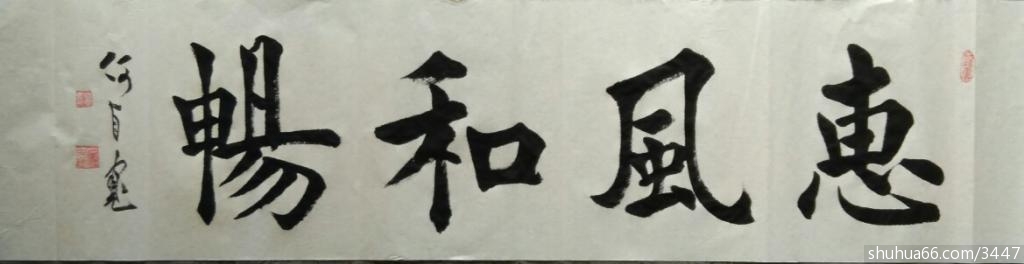 惠風和暢
shuhua66.com/3447